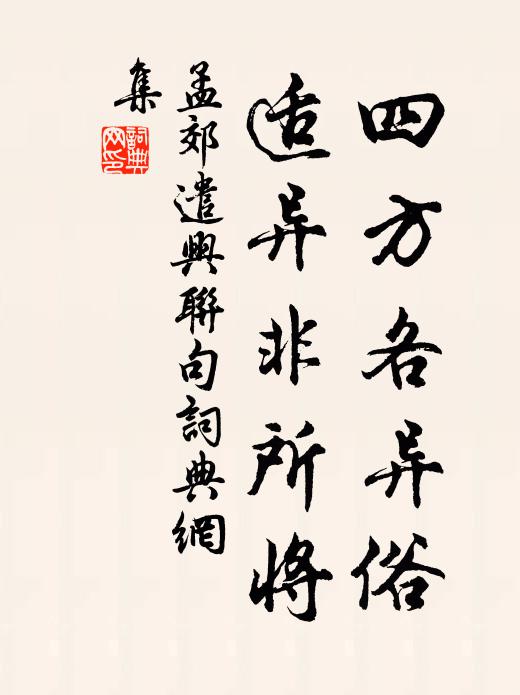 四方各异俗
适异非所将
孟郊遣興聯句詞典網
集
詞典网印